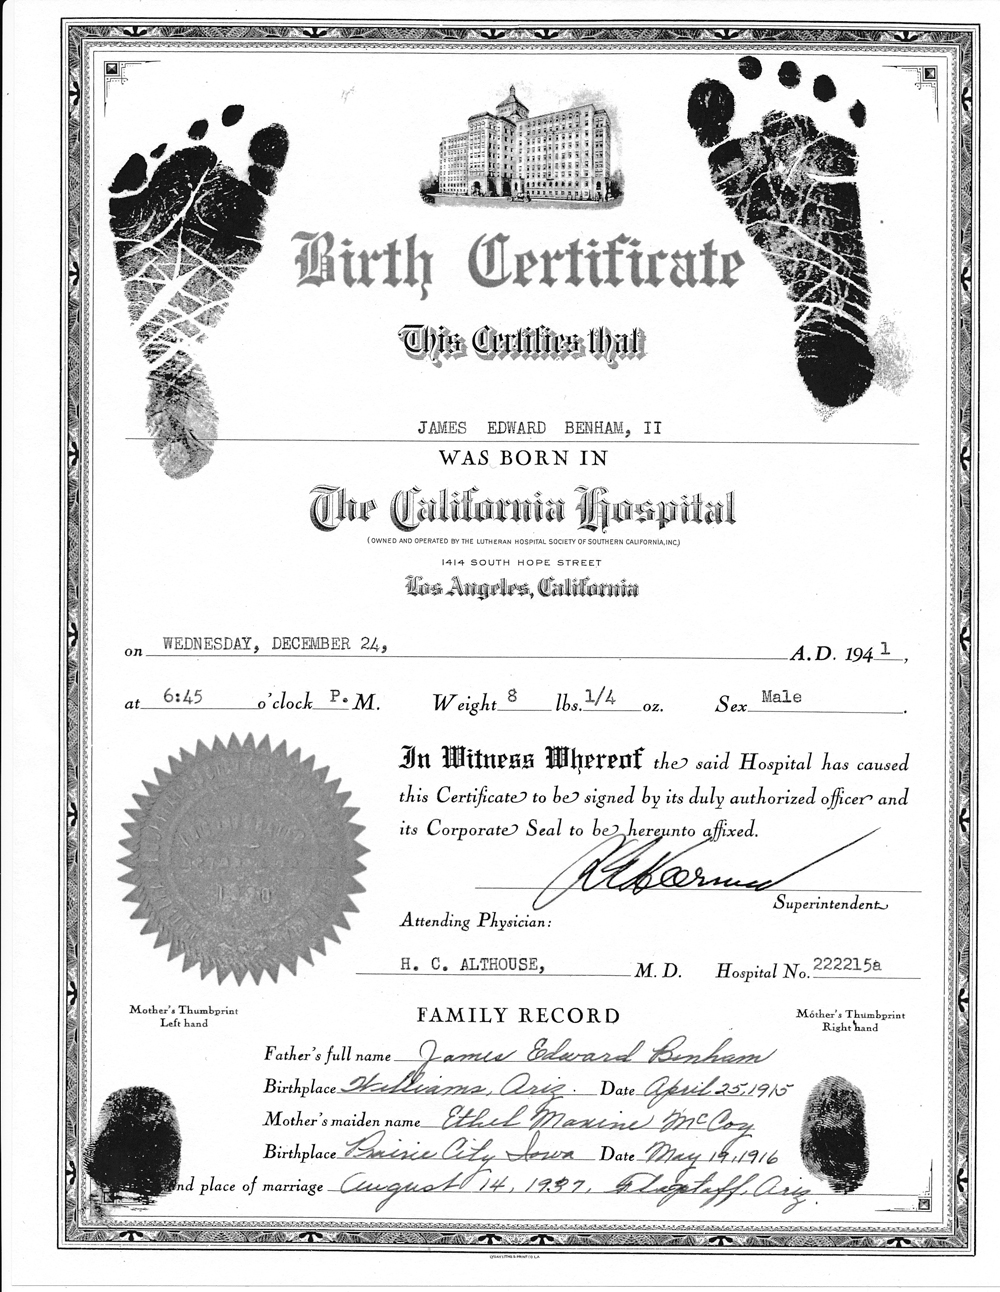 Birth Certificate
This Certifies that
JAMES EDWARD BENHAM, II
WAS BORN IN
The California Hospital
(OWNED AND OPERATED BY THE LUTHERAN HOSPITAL SOCIETY OF SOUTHERN CALIFORNIA, INC.)
1414 SOUTH HOPE STREET
Los Angeles, California
on WEDNESDAY, DECEMBER 24, A.D. 1941,
at 6:45 o'clock P. M. Weight 8 lbs. 1/4 oz. Sex Male.
In Witness Whereof the said Hospital has caused
this Certificate to be signed by its duly authorized officer and
its Corporate Seal to be hereunto affixed.
Superintendent
Attending Physician:
H. C. ALTHOUSE, M. D. Hospital No. 222215a
Mother's Thumbprint
Left hand
FAMILY RECORD
Mother's Thumbprint
Right hand
Father's full name James Edward Benham
Birthplace Williams, Ariz. Date April 25, 1915
Mother's maiden name Ethel Maxine McCoy
Birthplace Prairie City Iowa Date May 19, 1916
nd place of marriage August 14, 1937, Flagstaff, Ariz.